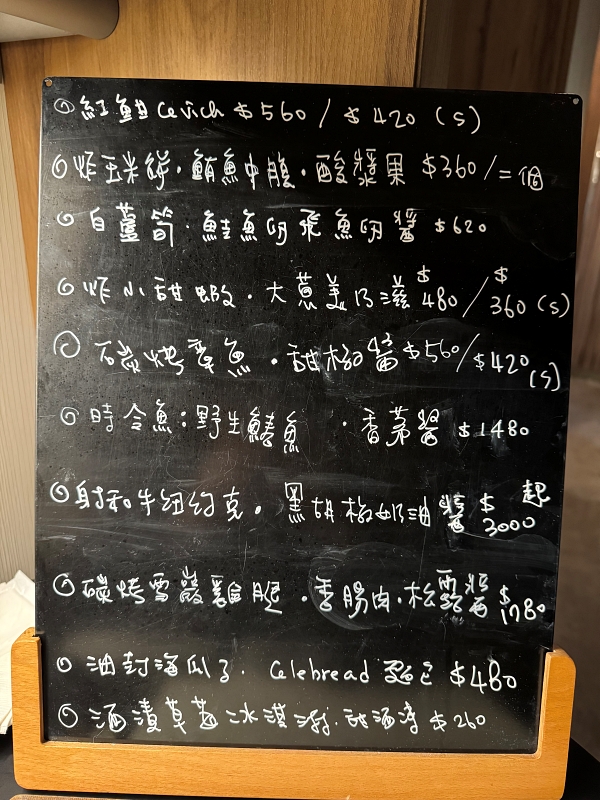 紅魽 Cevich $560 / $420 (S)
炸玉米餅·鮪魚中腹·酸漿果 $360/=個
白蘆筍·鮭魚卵飛魚卵醬 $620
炸小甜蝦·大蔥美乃滋 $480/$360 (S)
石炭烤章魚·甜椒醬 $560/$420 (S)
時令魚:野生鰆魚·香茅醬 $1480
射和牛紐約克。黑胡椒奶油醬 $3000起
碳烤雪菽雞腿·香腸肉·松露醬 $1780
油封海瓜子. Celebread 麵包 $480
酒漬草莓冰淇淋. 甜酒凍 $260